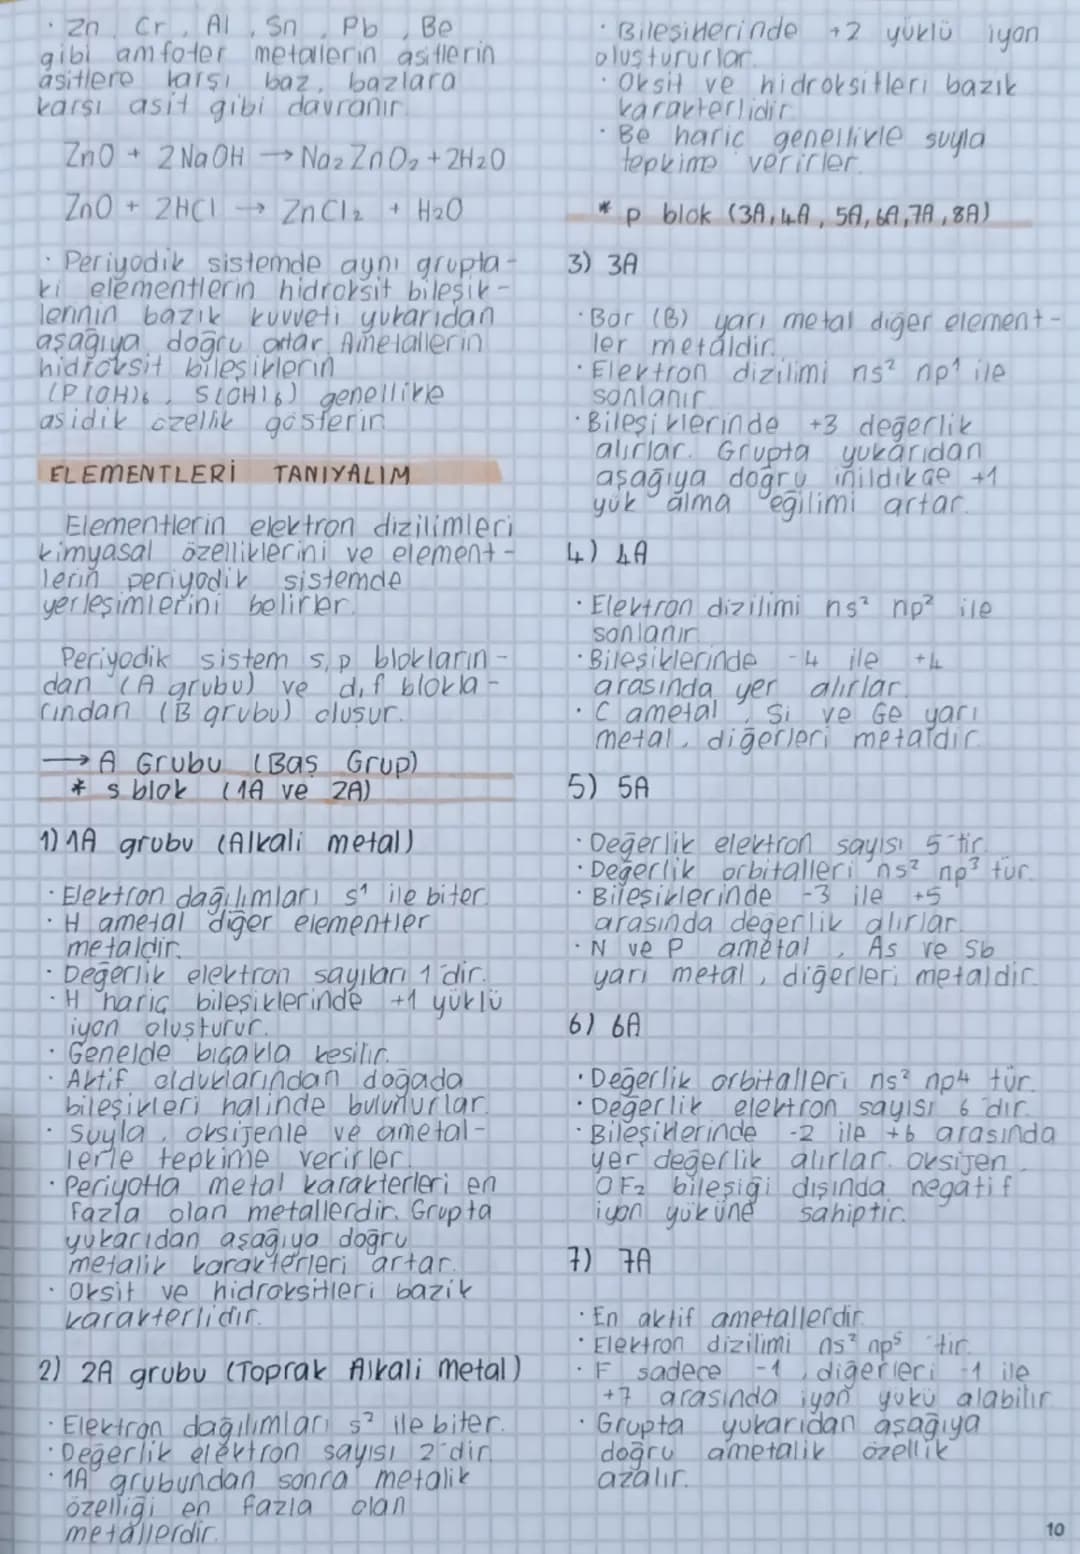 · Zn, Cr, Al, Sn, Pb, Be
gibi amfoter metallerin asitlerin
asitlere karşı baz, bazlara
karşı asit gibi davranır.
ZnO + 2NaOH → Na₂ZnO₂ + 2H₂O
ZnO + 2HCl → ZnCl₂ + H₂O
· Periyodik sistemde aynı grupta-
ki elementlerin hidroksit bileşik-
lerinin bazik kuvveti yukarıdan
aşağıya doğru artar. Ametallerin
hidroksit bileşiklerin
(P(OH)₆, S(OH)₆) genellikle
asidik özellik gösterir.
ELEMENTLERİ TANIYALIM
Elementlerin elektron dizilimleri
kimyasal özelliklerini ve element-
lerin periyodik sistemde
yerleşimlerini belirler.
Periyodik sistem s,p blokların-
dan (A grubu) ve d,f blokla-
rından (B grubu) oluşur.
→ A Grubu (Baş Grup)
* s blok (1A ve 2A)
1) 1A grubu (Alkali metal)
· Elektron dağılımları s¹ ile biter.
· H ametal diğer elementler
metaldir.
· Değerlik elektron sayıları 1'dir.
· H hariç bileşiklerinde +1 yüklü
iyon oluşturur.
· Genelde bıçakla kesilir.
· Aktif olduklarından doğada
bileşikleri halinde bulunurlar.
· Suyla, oksijenle ve ametal-
lerle tepkime verirler.
· Periyotta metal karakterleri en
fazla olan metallerdir. Grupta
yukarıdan aşağıya doğru
metalik karakterleri artar.
· Oksit ve hidroksitleri bazik
karakterlidir.
2) 2A grubu (Toprak Alkali Metal)
· Elektron dağılımları s² ile biter.
· Değerlik elektron sayısı 2'dir.
· 1A grubundan sonra metalik
özelliği en fazla olan
metallerdir.
· Bileşiklerinde +2 yüklü iyon
oluştururlar.
· Oksit ve hidroksitleri bazik
karakterlidir.
· Be hariç genellikle suyla
tepkime verirler.
* p blok (3A, 4A, 5A, 6A, 7A, 8A)
3) 3A
· Bor (B) yarı metal diğer element-
ler metaldir.
· Elektron dizilimi ns² np¹ ile
sonlanır.
· Bileşiklerinde +3 değerlik
alırlar. Grupta yukarıdan
aşağıya doğru inildikçe +1
yük alma eğilimi artar.
4) 4A
· Elektron dizilimi ns² np² ile
sonlanır.
· Bileşiklerinde -4 ile +4
arasında yer alırlar.
· C ametal, Si ve Ge yarı
metal, diğerleri metaldir.
5) 5A
· Değerlik elektron sayısı 5'tir.
· Değerlik orbitalleri ns² np³ tür.
· Bileşiklerinde -3 ile +5
arasında değerlik alırlar.
· N ve P ametal, As ve Sb
yarı metal, diğerleri metaldir.
6) 6A
· Değerlik orbitalleri ns² np4 tür.
· Değerlik elektron sayısı 6'dır.
· Bileşiklerinde -2 ile +6 arasında
yer değerlik alırlar. Oksijen
OF₂ bileşiği dışında negatif
iyon yüküne sahiptir.
7) 7A
· En aktif ametallerdir.
· Elektron dizilimi ns² np⁵ 'tir.
· F sadece -1, diğerleri -1 ile
+7 arasında iyon yükü alabilir.
· Grupta yukarıdan aşağıya
doğru ametalik özellik
azalır.
10